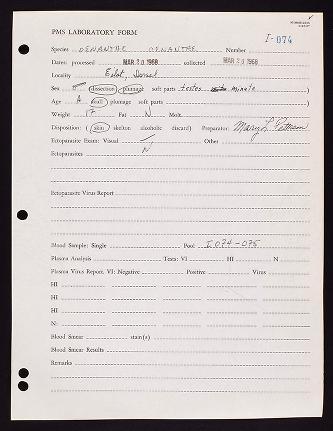 PMS LABORATORY FORM
I-074
Species OENANTHE OENANTHE Number
Dates: processed MAR 20 1968 collected MAR 20 1968
Locality Eilat, Israel
Sex ♂ (dissection plumage soft parts testes minute)
Age A (skull plumage soft parts)
Weight 17 Fat N Molt
Disposition: (skin skelton alcoholic discard) Preparator: Mary L.
Ectoparasite Exam: Visual Other
Ectoparasites N
Ectoparasite Virus Report
Blood Sample: Single Pool I 074-075
Plasma Analysis Tests: VI HI N
Plasma Virus Report. VI: Negative Positive Virus
HI
HI
HI
N:
Blood Smear stain(s)
Blood Smear Results
Remarks